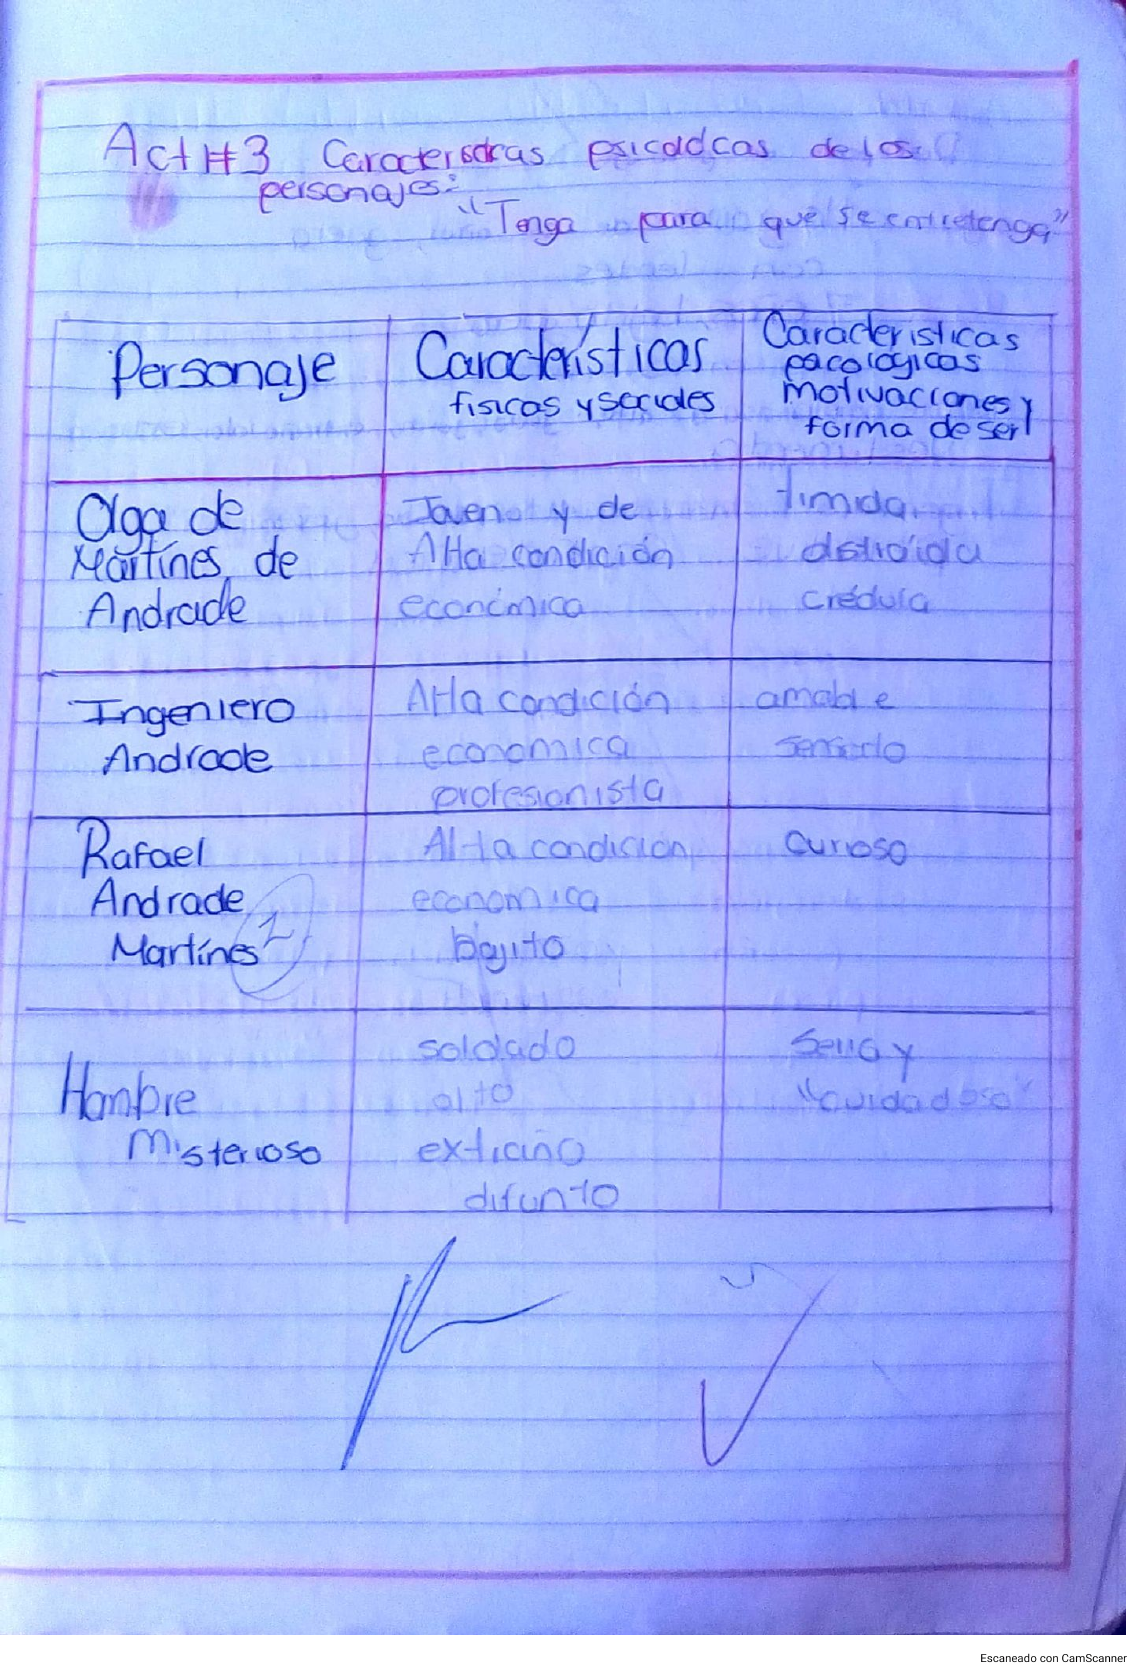 Act #3 Caracteristicas psicoldcas de los
personajes:
"Tenga para que se entretenga"
Personaje
Características
fisicas y sociales
Caracteristicas
psicológicas
motivaciones y
forma de ser
Olga de
Martínes de
Andrade
Joven y de
Alta condición
económica
timida
distraída
crédula
Ingeniero
Andrade
Alta condición
economica
profesionista
amable
Rafael
Andrade
Martínes
Alta condicion
economica
bajito
curioso
Hombre
Misterioso
soldado
alto
extraño
difunto
Seria y
"cuidadoso"
Escaneado con CamScanner